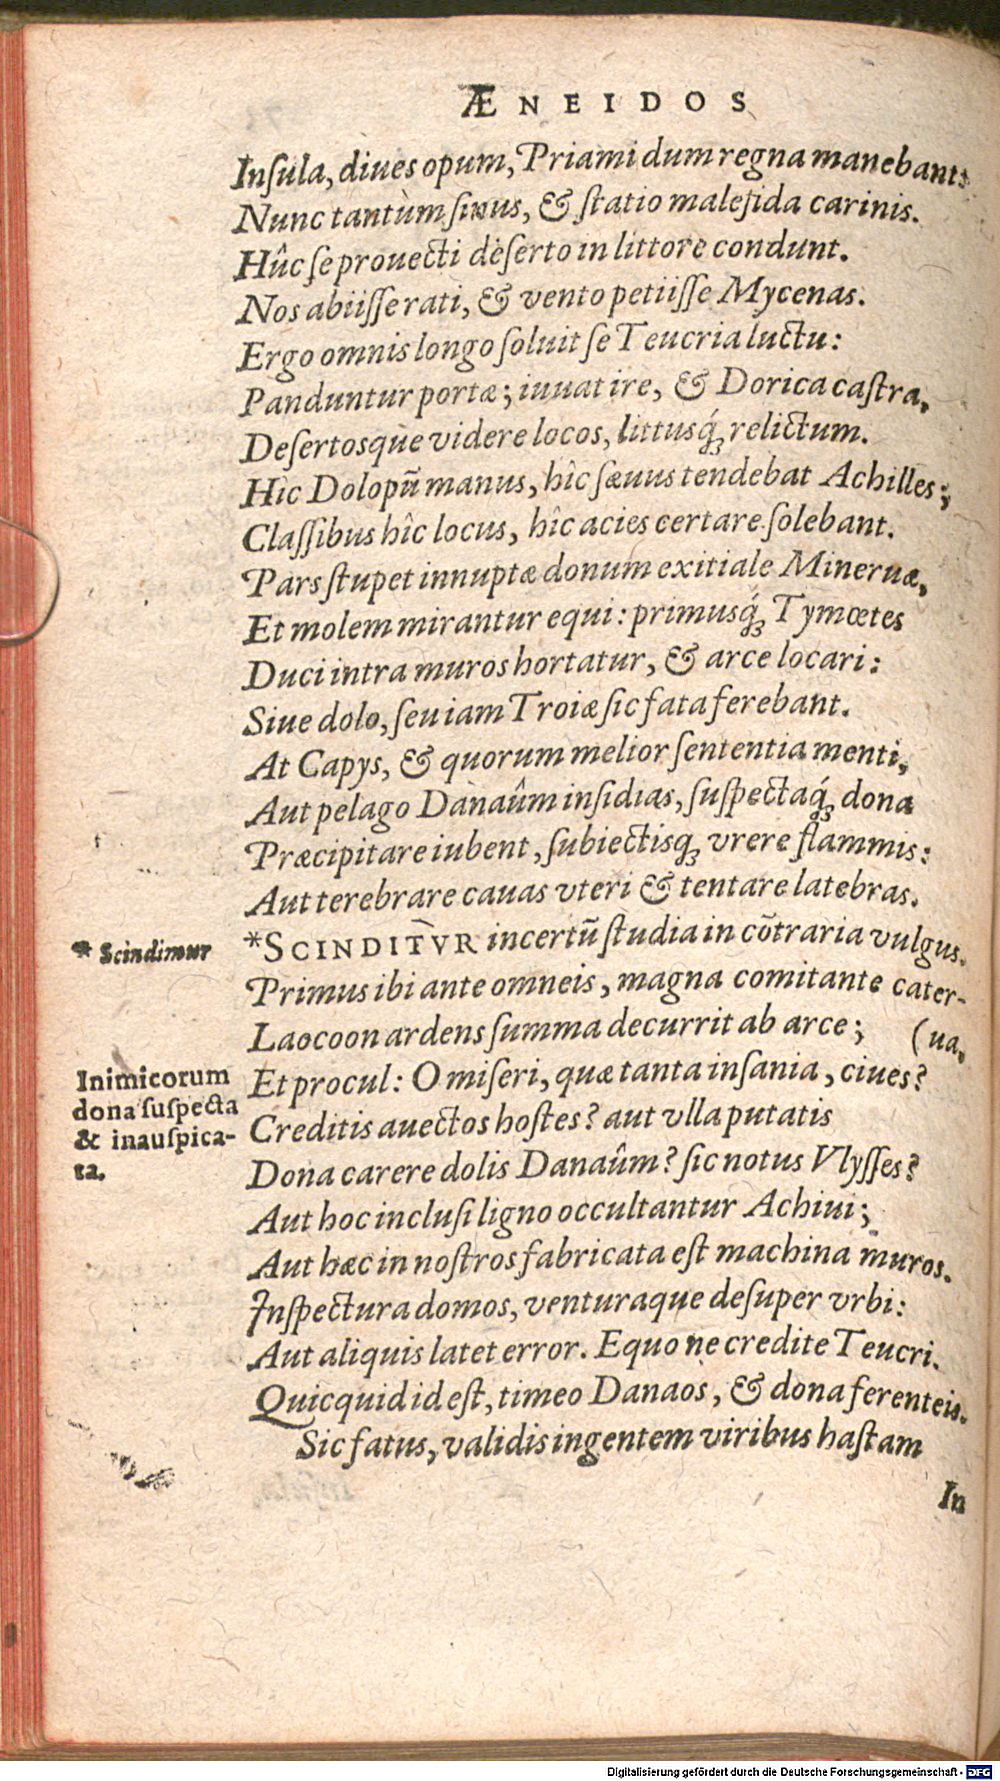 ÆNEIDOS
Inſula, diues opum, Priami dum regna manebant:
Nunc tantùm ſinus, & ſtatio malefida carinis.
Hûc ſe prouecti deſerto in littore condunt.
Nos abiiſſe rati, & vento petiiſſe Mycenas.
Ergo omnis longo ſoluit ſe Teucria luctu:
Panduntur portæ; iuuat ire, & Dorica caſtra,
Deſertosque videre locos, littusq́ꝫ relictum.
Hîc Dolopū manus, hîc ſæuus tendebat Achilles;
Claſſibus hîc locus, hîc acies certare ſolebant.
Pars ſtupet innuptæ donum exitiale Mineruæ,
Et molem mirantur equi: primusq́ꝫ Tymœtes
Duci intra muros hortatur, & arce locari:
Siue dolo, ſeu iam Troiæ ſic fata ferebant.
At Capys, & quorum melior ſententia menti,
Aut pelago Danaûm inſidias, ſuſpectaq́ꝫ dona
Præcipitare iubent, ſubiectisqꝫ vrere flammis:
Aut terebrare cauas vteri & tentare latebras.
* Scindimur
*SCINDITVR incertū ſtudia in cōtraria vulgus.
Primus ibi ante omneis, magna comitante cater-
Laocoon ardens ſumma decurrit ab arce; (ua,
Inimicorum
dona ſuſpecta
& inauſpica-
ta.
Et procul: O miſeri, quæ tanta inſania, ciues?
Creditis auectos hoſtes? aut vlla putatis
Dona carere dolis Danaûm? ſic notus Vlyſſes?
Aut hoc incluſi ligno occultantur Achiui;
Aut hæc in noſtros fabricata eſt machina muros.
Inſpectura domos, venturaque deſuper vrbi:
Aut aliquis latet error. Equo ne credite Teucri.
Quicquid id eſt, timeo Danaos, & dona ferenteis.
Sic fatus, validis ingentem viribus haſtam
In
Digitalisierung gefördert durch die Deutsche Forschungsgemeinschaft - DFG